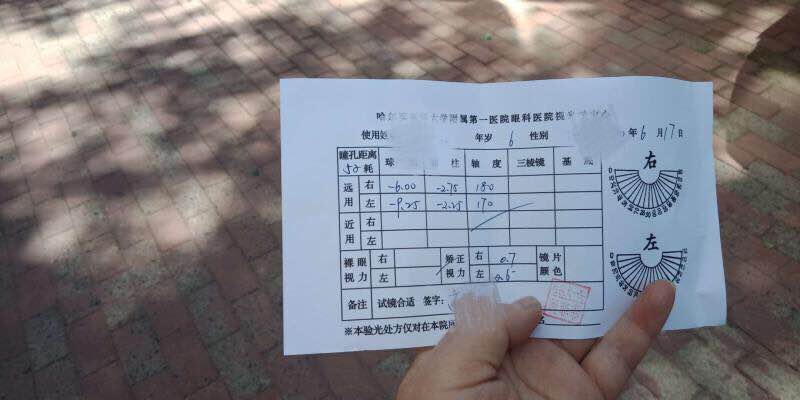 大学附属第一医院眼科医院视
使用 年岁 6 性别 年 6 月 17 日
瞳孔距离 球 柱 轴度 三棱镜 基底
52 耗
远用 右 -6.00 -2.75 180
左 -9.25 -2.25 170
近用 右
左
裸眼视力 右 矫正视力 右 0.7 镜片颜色
左 左 0.6
备注 试镜合适 签字:
※本验光处方仅对在本院
右
左